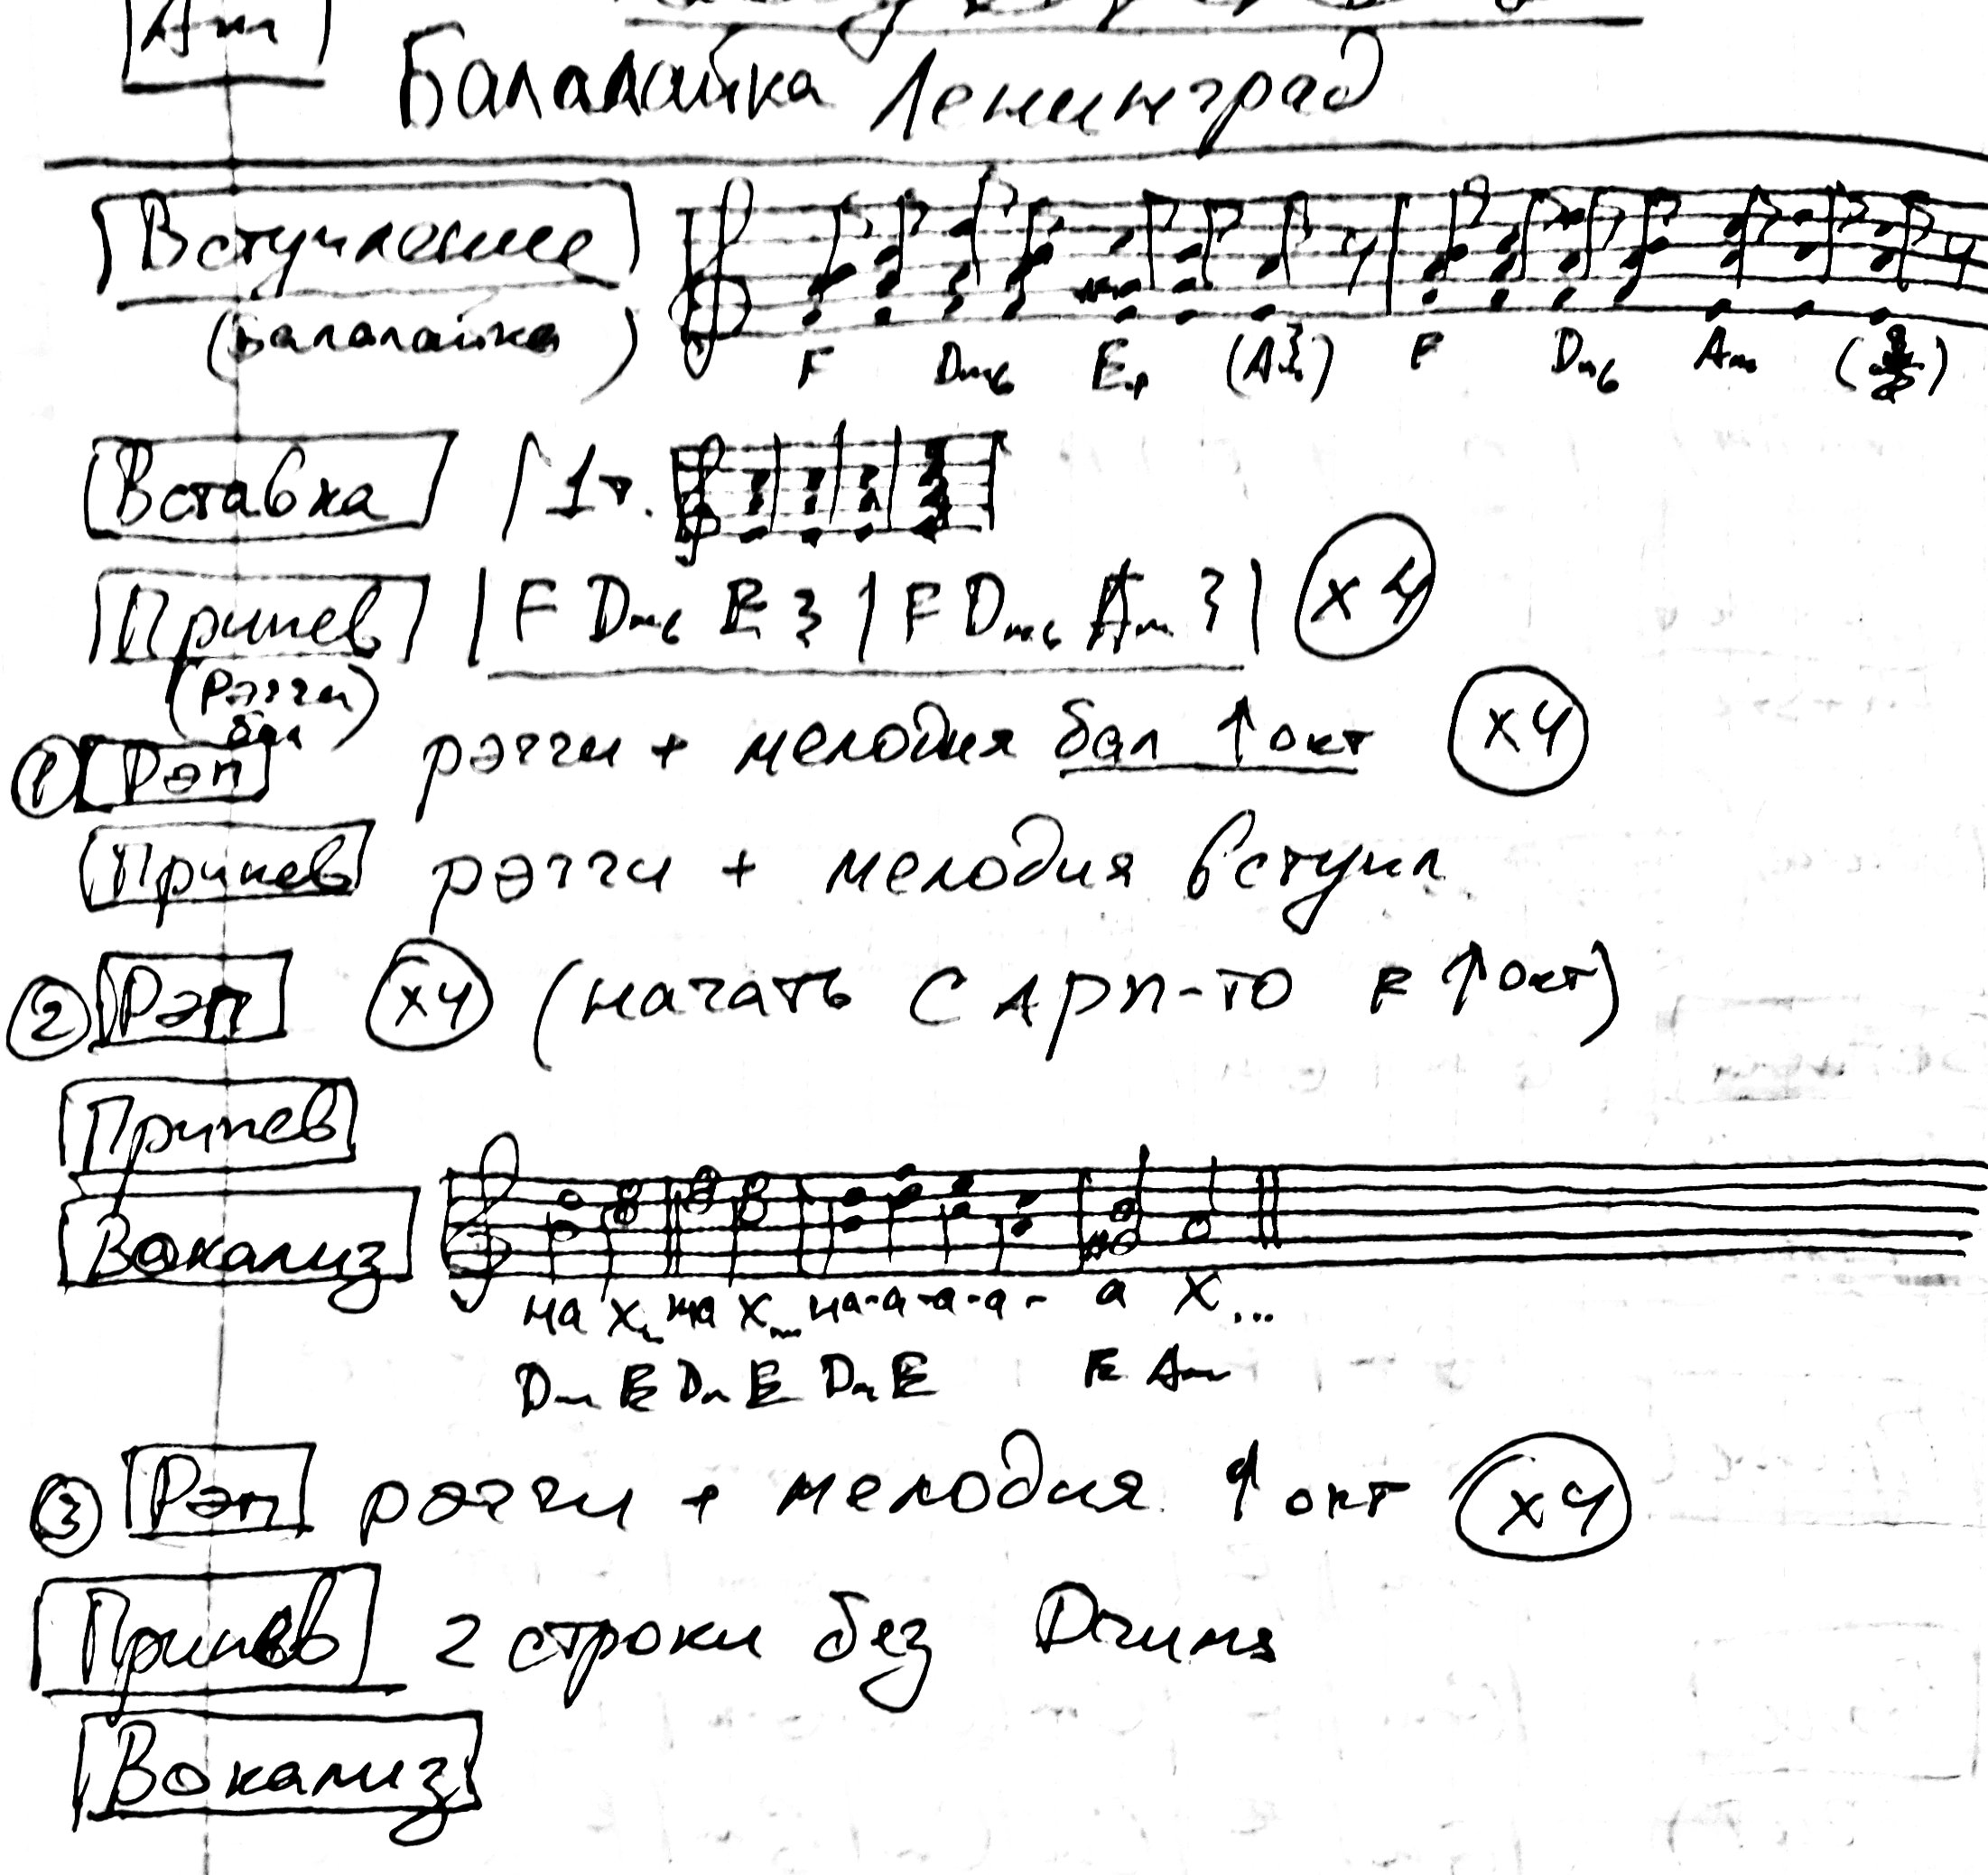 Am
Балалайка Ленинград
Вступление
(балалайка)
F Dm6 E (Am) F Dm6 Am
Вставка 1т.
Припев | F Dm6 E | F Dm6 Am | x4
(Рэгги
бал)
1 Рэп рэгги + мелодия бал ↑ окт x4
Припев рэгги + мелодия вступл.
2 Рэп x4 (начать с арп-то F ↑ окт)
Припев
Вокализ
на х на х на-а-а-а- а х...
Dm E Dm E Dm E E Am
3 Рэп рэгги + мелодия ↑ окт x4
Припев 2 строки без
Вокализ